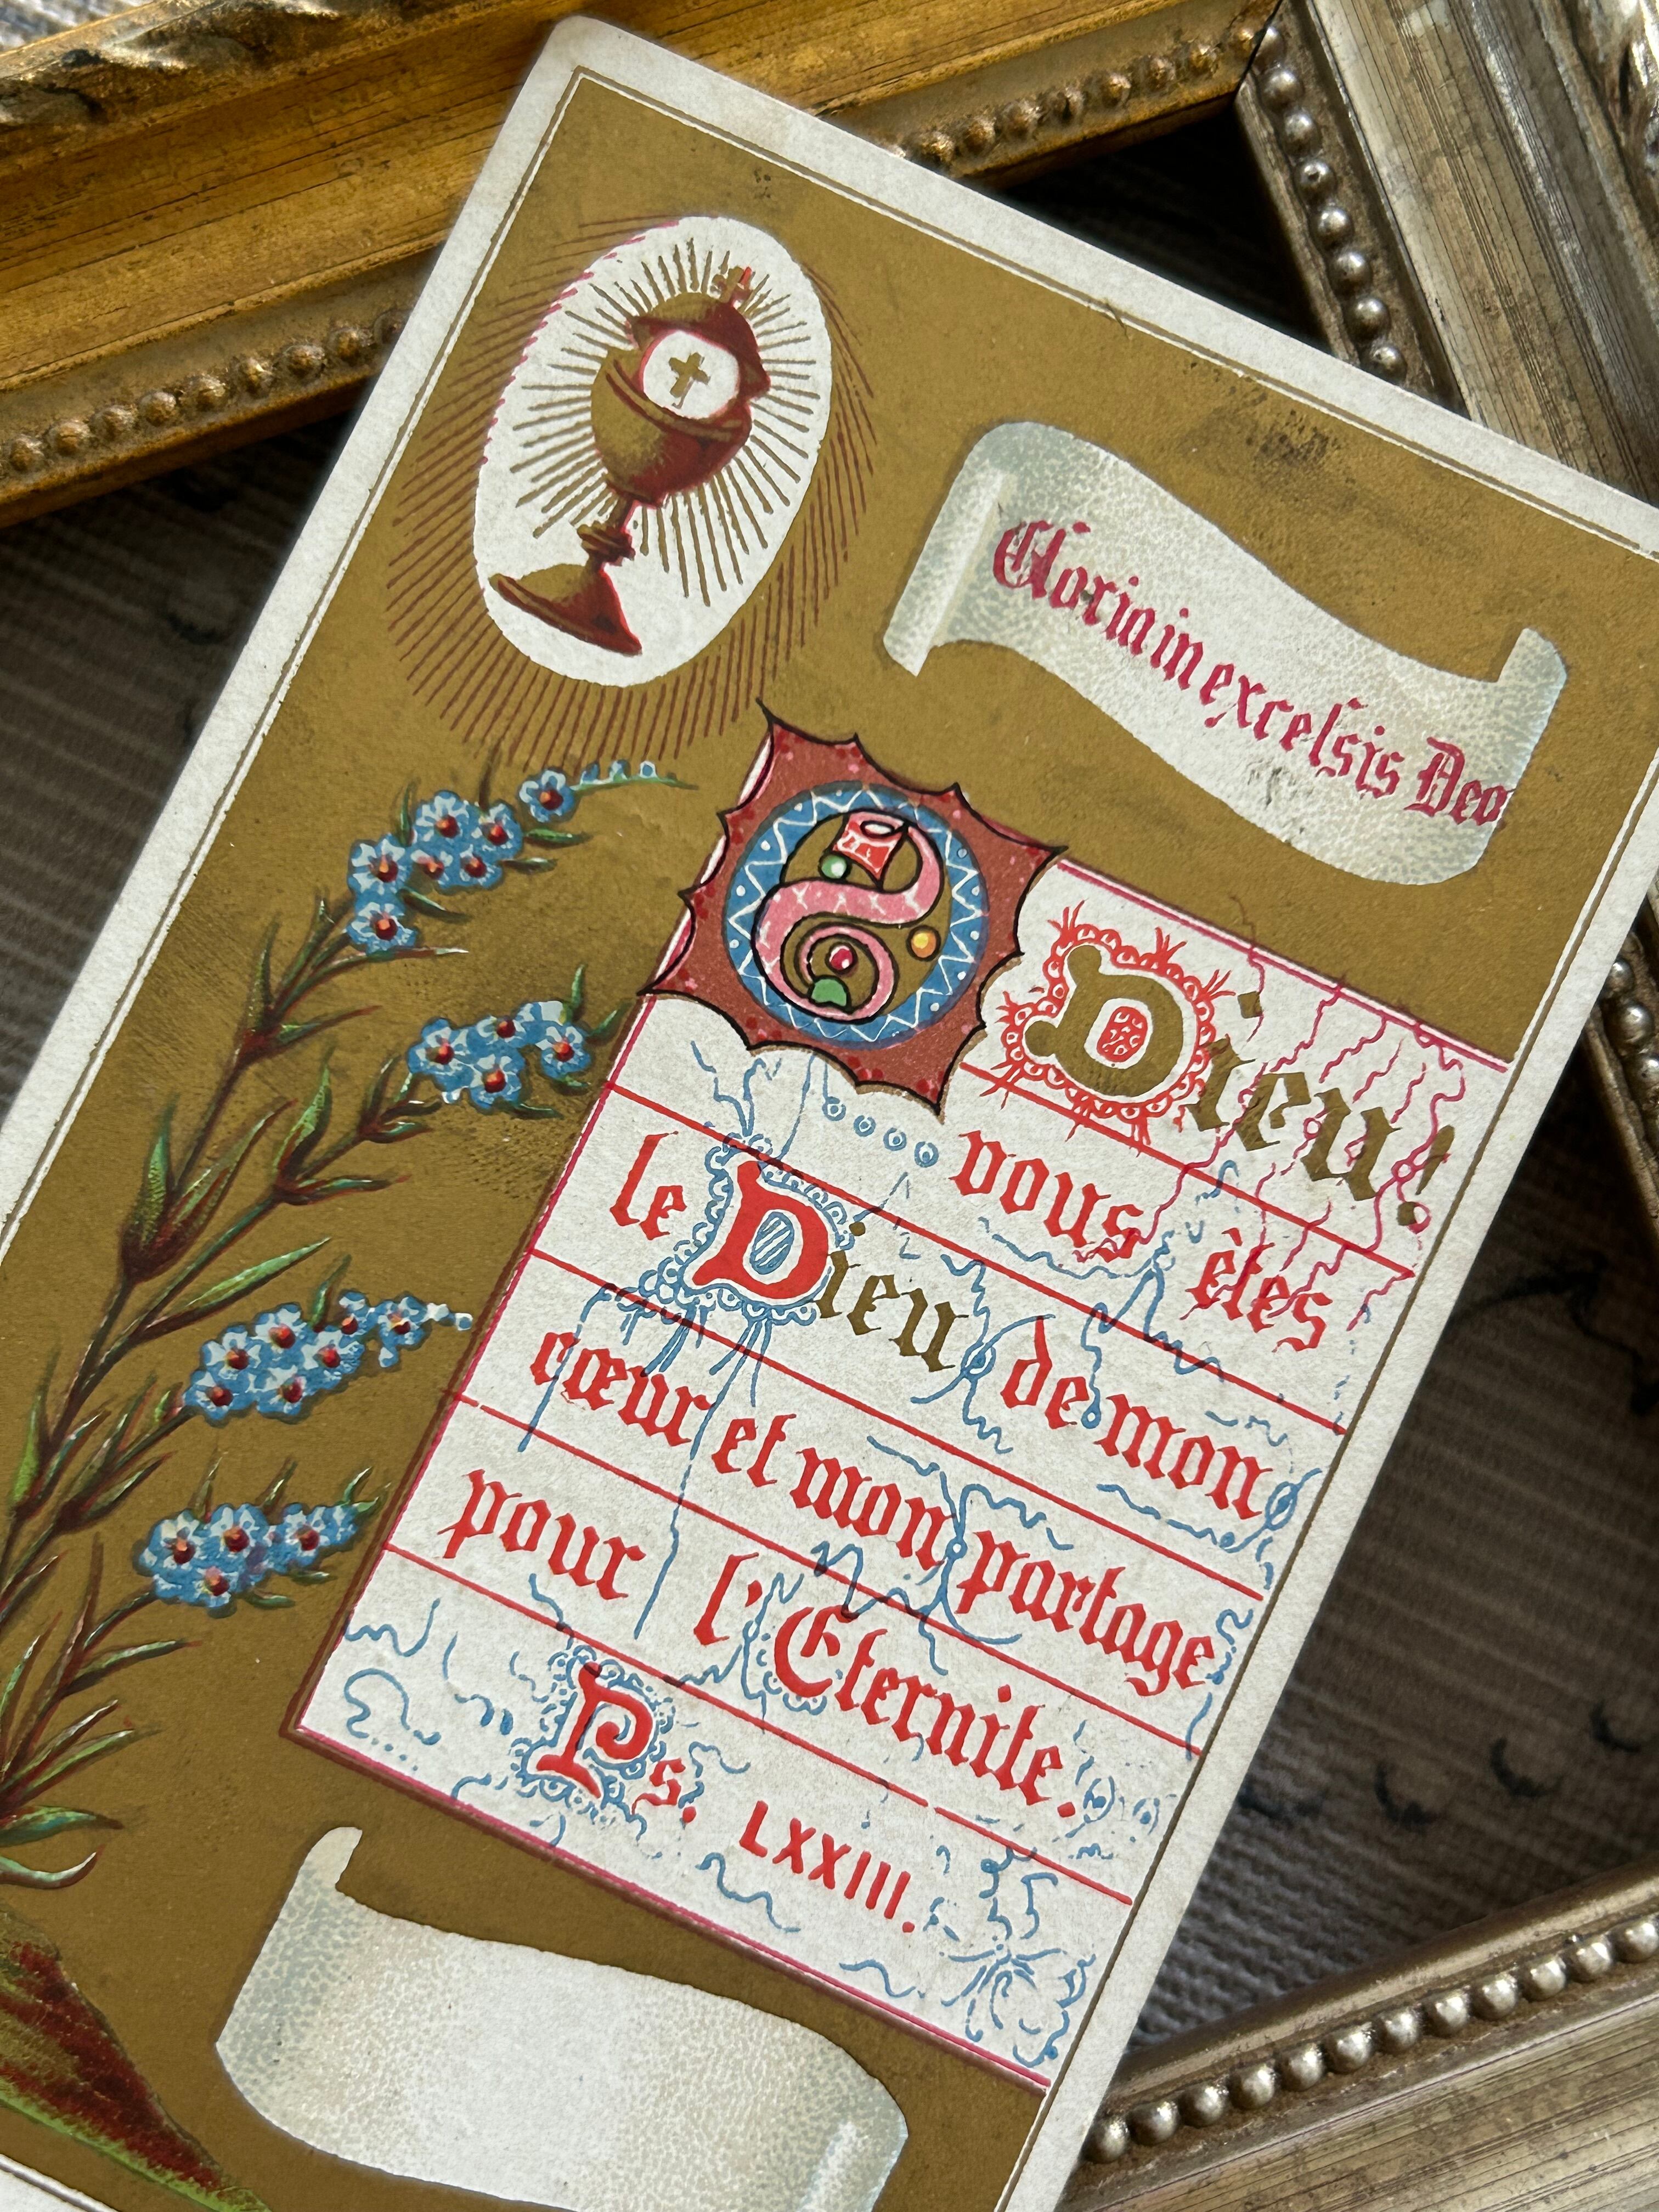 Gloria in excelsis Deo
O Dieu!
vous êtes
le Dieu de mon
cœur et mon partage
pour l'Eternite.
Ps. LXXIII.